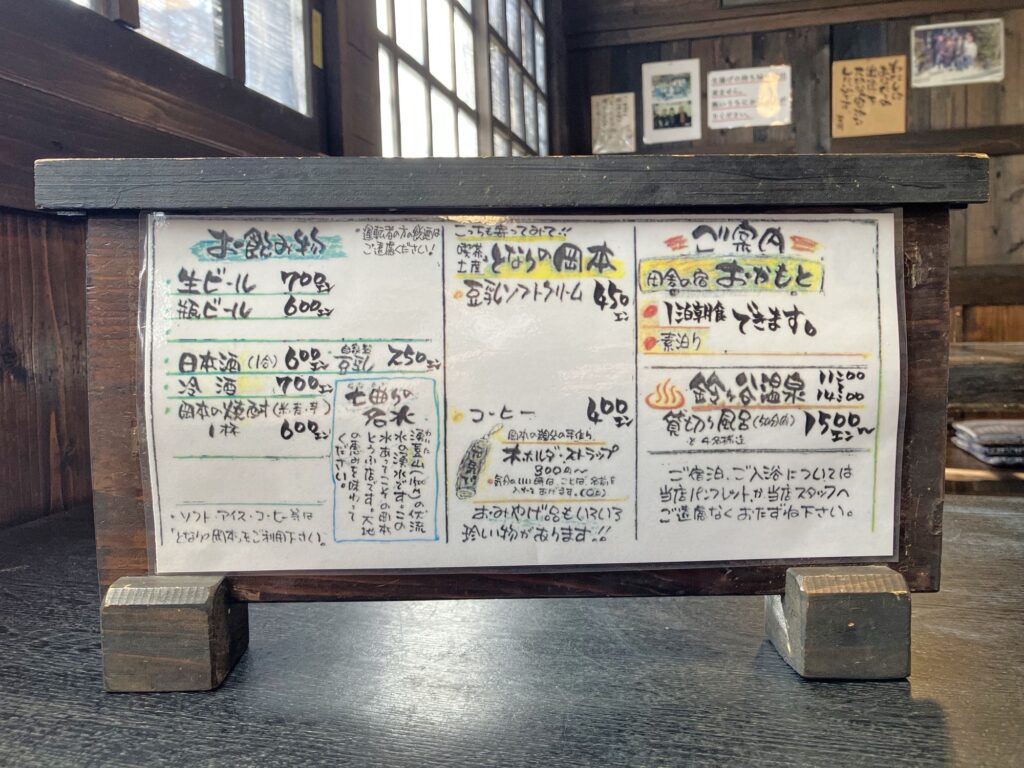 お飲み物
・運転者の方の飲酒は
ご遠慮ください!
・生ビール 700エン
・瓶ビール 600エン
・日本酒(1合) 600エン
自家製
豆乳 250エン
・冷酒 700エン
・岡本の焼酎(米・麦・芋)
1杯 600エン
七曲りの
名水
の伏流
水の湧水です。この
水あってこその岡本
とうふ店です。大地
の恵みを味わって
ください。
・ソフト・アイス・コーヒー等は
"となりの岡本"をご利用下さい。
こっちも寄ってみて!!
喫茶
土産 となりの岡本
・豆乳ソフトクリーム 450エン
・コーヒー 400エン
木ホルダ・ストラップ
300エン〜
・自分のいい画、ことば、名前を
入れてあげます。
おみやげ品もいろいろ
珍しい物があります!!
ご案内
田舎の宿 おかもと
1泊朝食 できます。
素泊り
♨ 鈴ヶ谷温泉 11:00
14:00
貸切り風呂(50分内) 1500エン〜
ご宿泊、ご入浴については
当店パンフレットか当店スタッフへ
ご遠慮なくおたずね下さい。